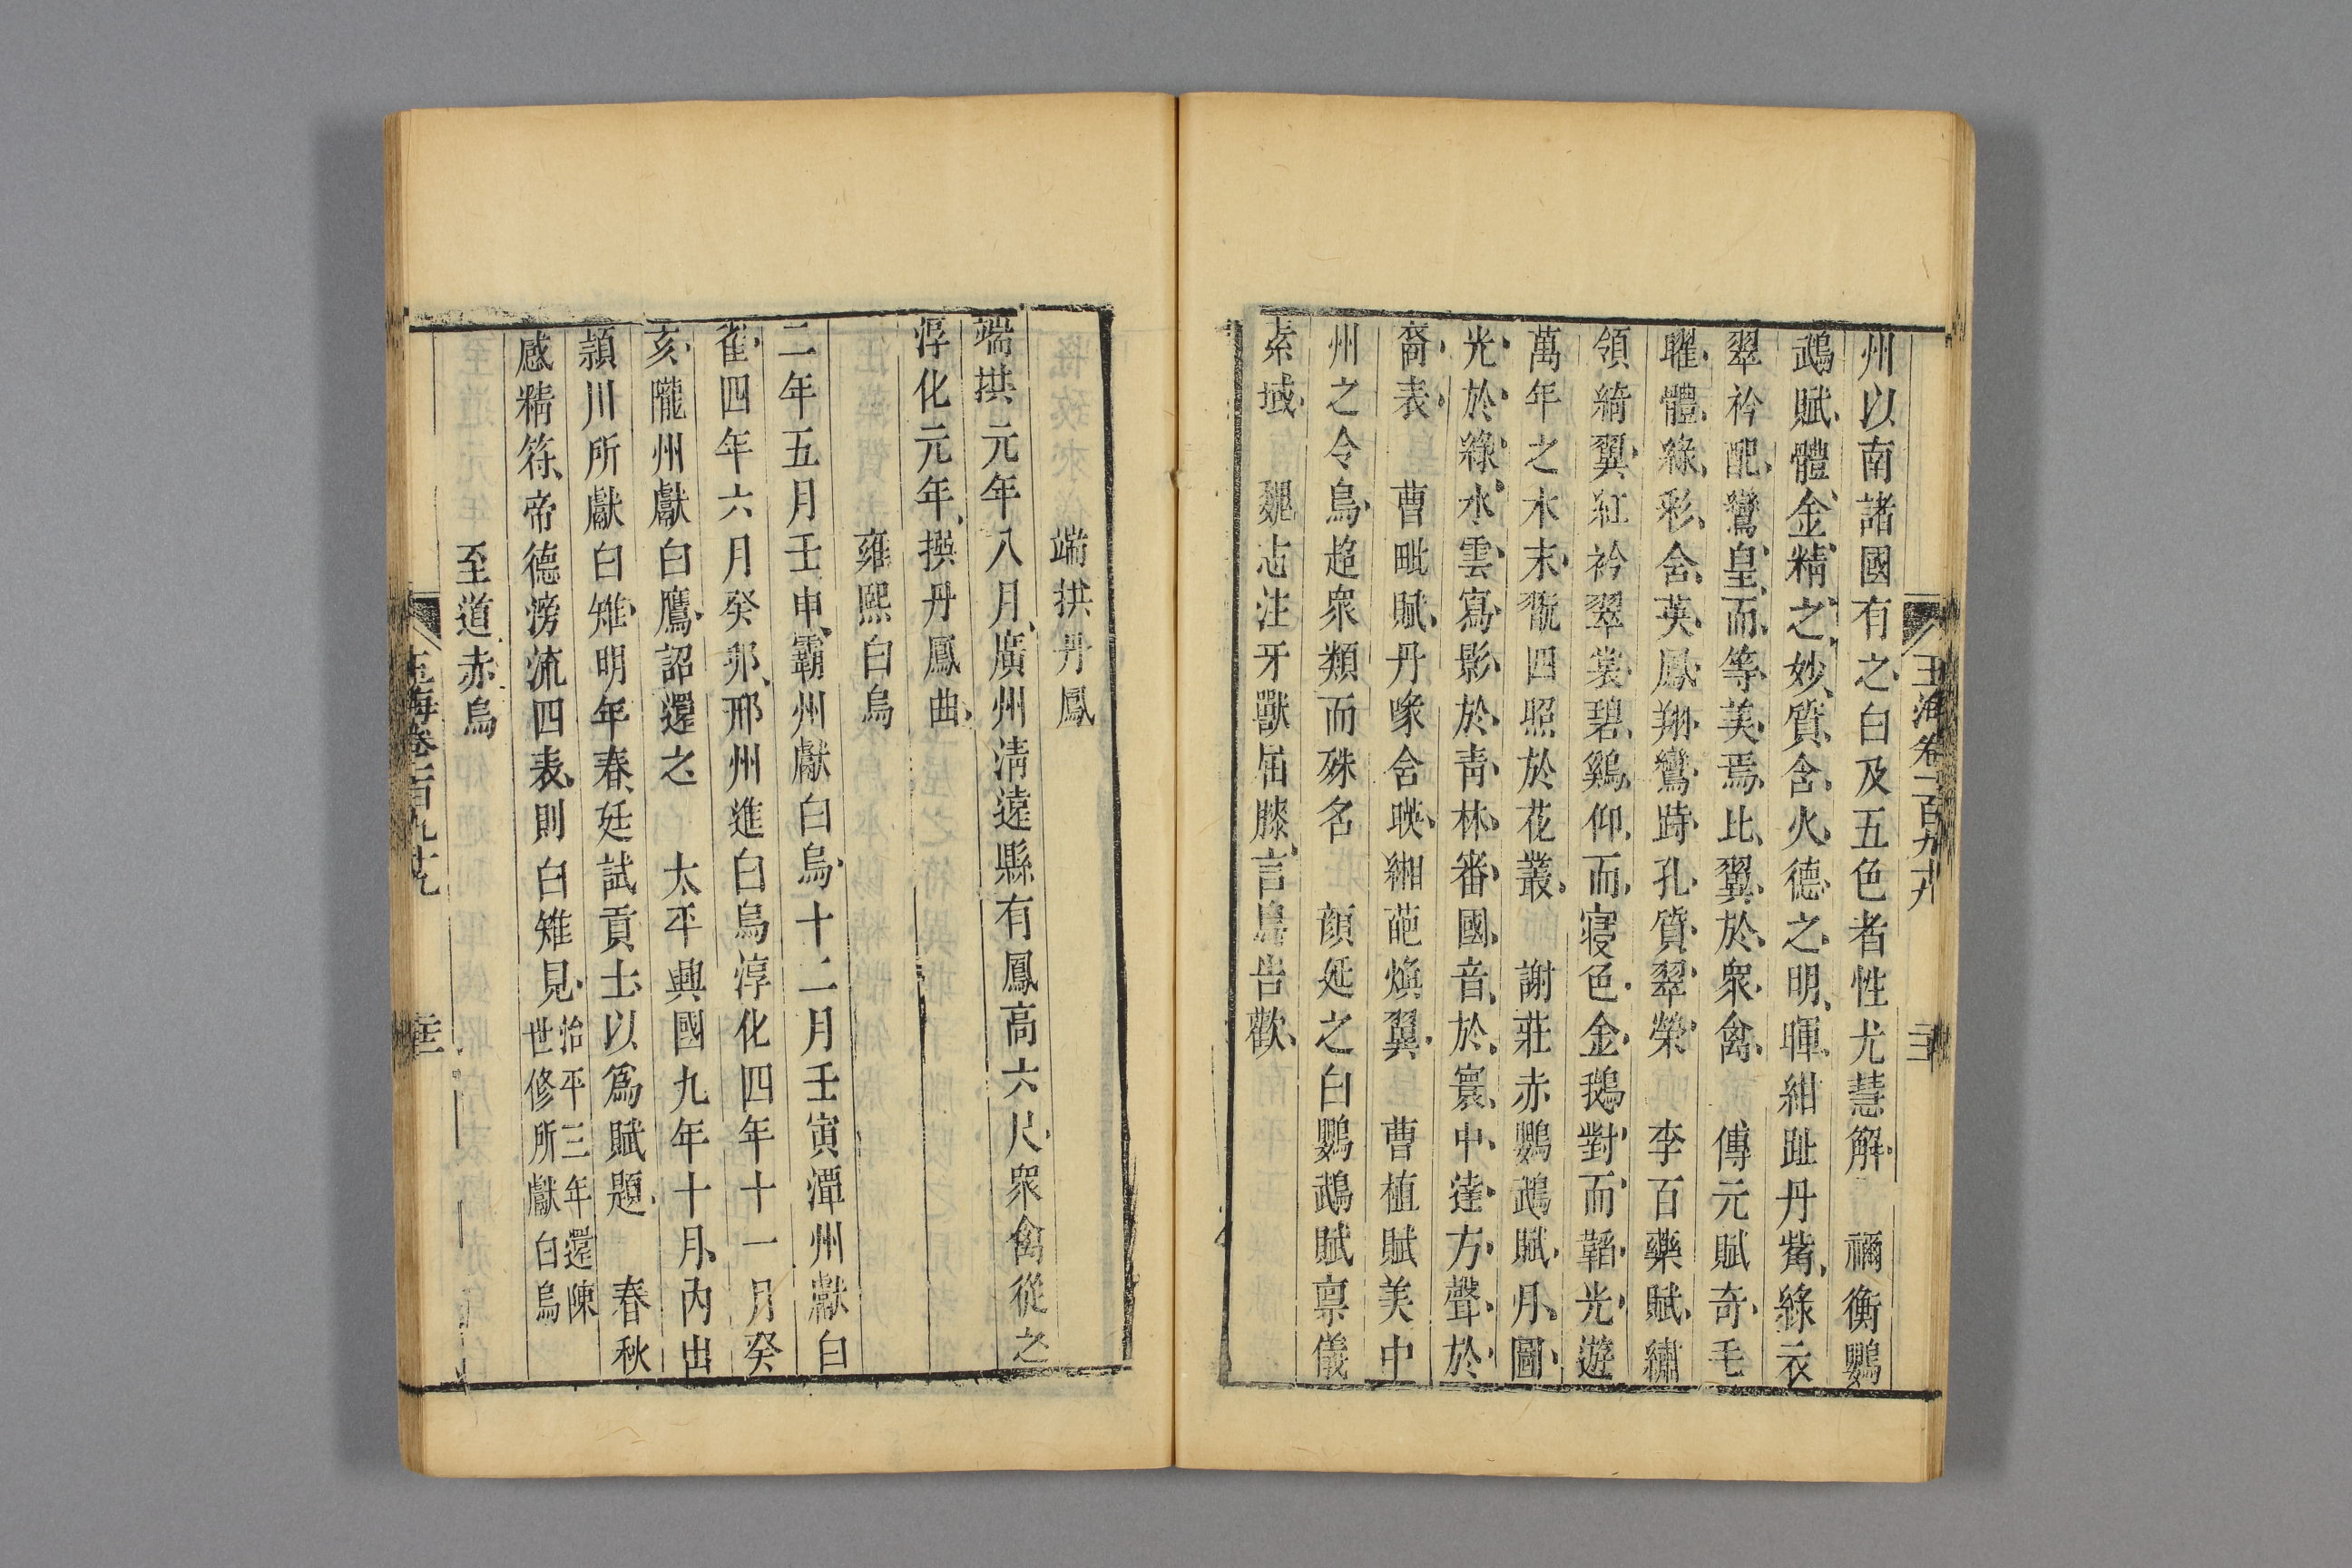 玉海卷一百九十九
州以南諸國有之白及五色者性尤慧解 禰衡鸚
鵡賦體金精之妙質含火德之明暉紺趾丹觜綠衣
翠衿配鸞皇而等美焉比翼於衆禽 傅元賦奇毛
曜體綠彩含英鳳翔鸞跱孔質翠榮 李百藥賦繡
領綺翼紅衿翠裳碧鷄仰而寢色金鵝對而韜光遊
萬年之木末翫四照於花叢 謝莊赤鸚鵡賦月圖
光於綠水雲寫影於青林審國音於寰中達方聲於
裔表 曹毗賦丹喙含映緗葩煥翼 曹植賦美中
州之令鳥超衆類而殊名 顏延之白鸚鵡賦禀儀
素域 魏志注牙獸屈膝言鳥告歡
端拱丹鳳
端拱元年八月廣州清遠縣有鳳高六尺衆禽從之
淳化元年撰丹鳳曲
雍熙白烏
二年五月壬申霸州獻白烏十二月壬寅潭州獻白
雀四年六月癸卯邢州進白烏淳化四年十一月癸
亥隴州獻白鷹詔還之 太平興國九年十月內出
潁川所獻白雉明年春廷試貢士以爲賦題 春秋
感精符帝德滂流四表則白雉見治平三年還陳
世修所獻白烏
至道赤烏
玉海卷一百九十九